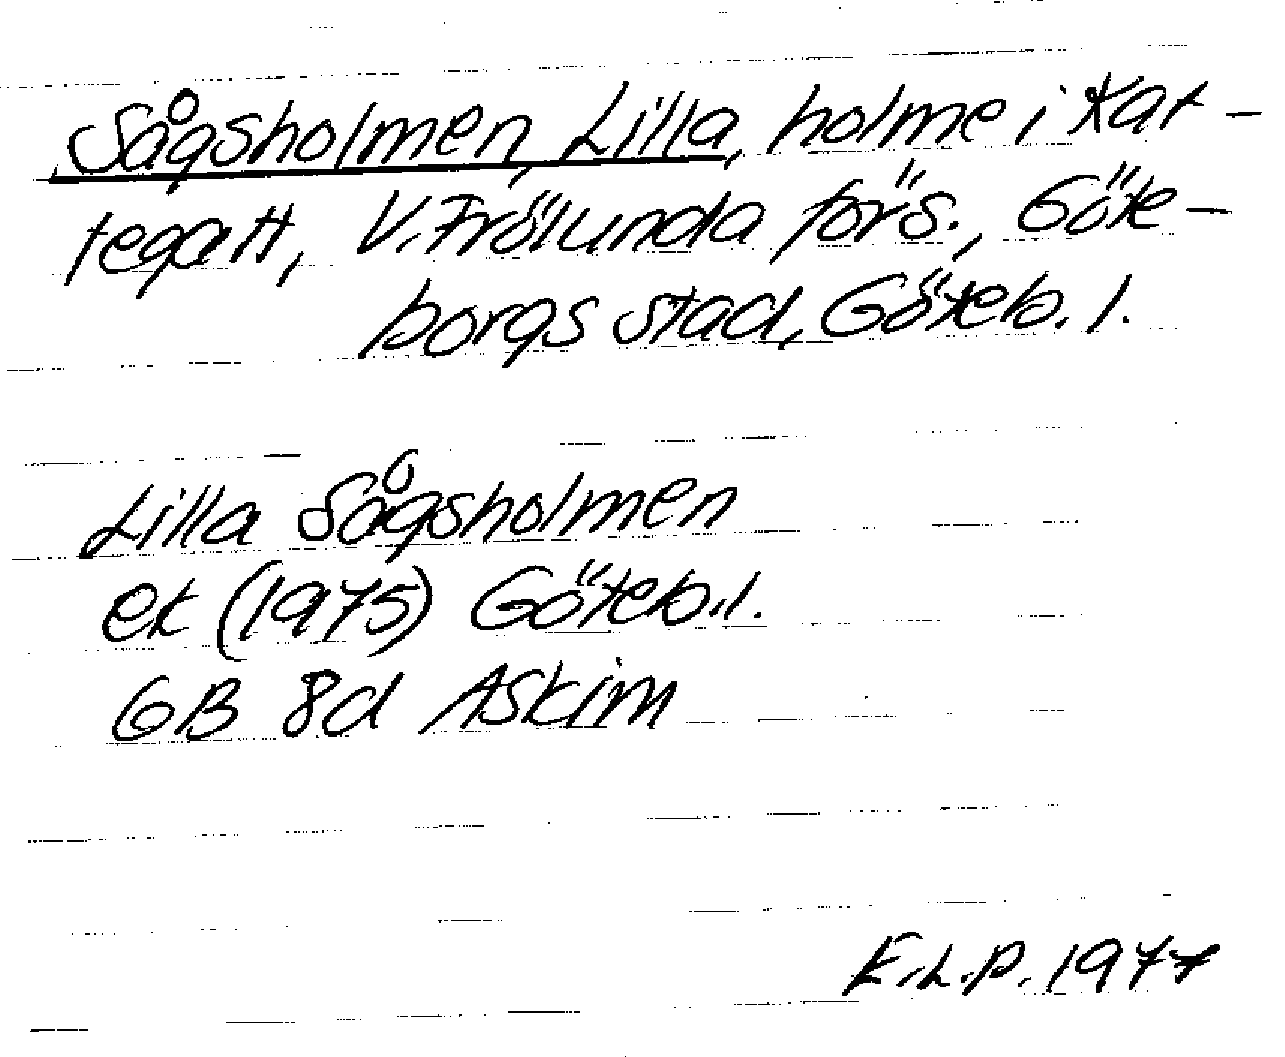 Sågsholmen, Lilla, holme i Kat-
tegatt, V. Frölunda förs., Göte-
borgs stad, Göteb. l.
Lilla Sågsholmen
ek (1975) Göteb. l.
GB 8d Askim
E.L.P. 1977